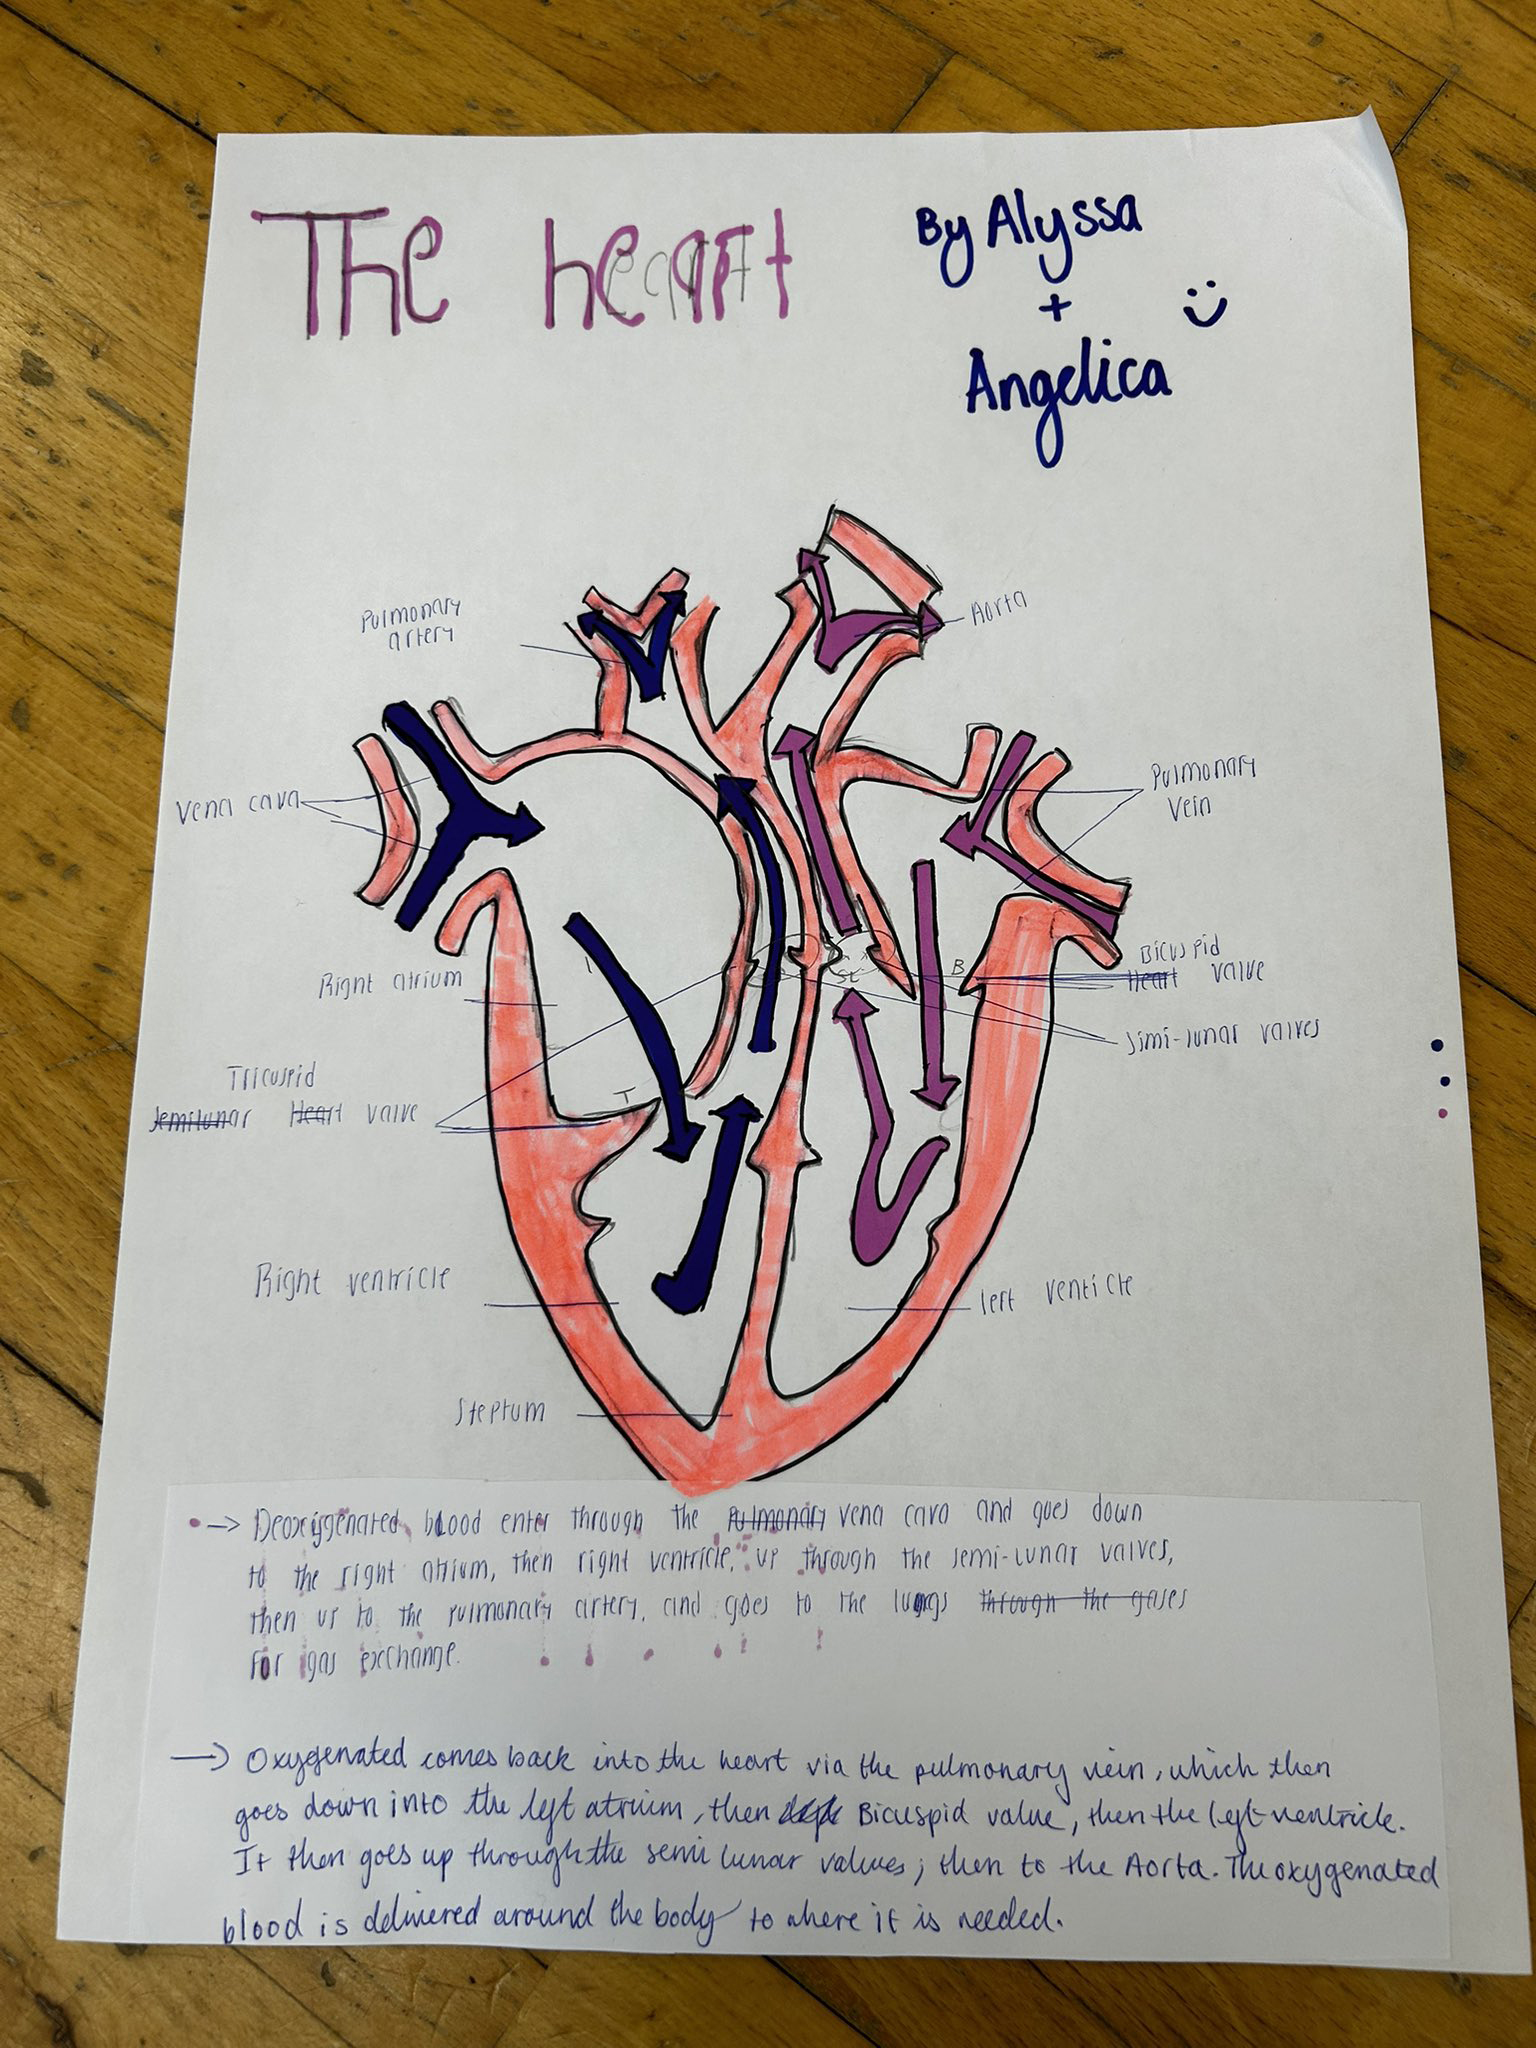 The heart
By Alyssa
+
Angelica
Pulmonary
artery
Aorta
Vena cava
Pulmonary
Vein
Right atrium
Bicuspid
Heart valve
B
SL
Simi-lunar valves
Tricuspid
Semilunar Heart valve
T
Right ventricle
left venticle
Steptum
→ Deoxygenated blood enter through the Pulmonary vena cava and goes down
to the right atrium, then right ventricle, up through the semi-lunar valves,
then up to the pulmonary artery, and goes to the lungs through the gases
for gas exchange.
→ Oxygenated comes back into the heart via the pulmonary vein, which then
goes down into the left atrium, then Bicuspid value, then the left ventricle.
It then goes up through the semi lunar values, then to the Aorta. The oxygenated
blood is delivered around the body to where it is needed.